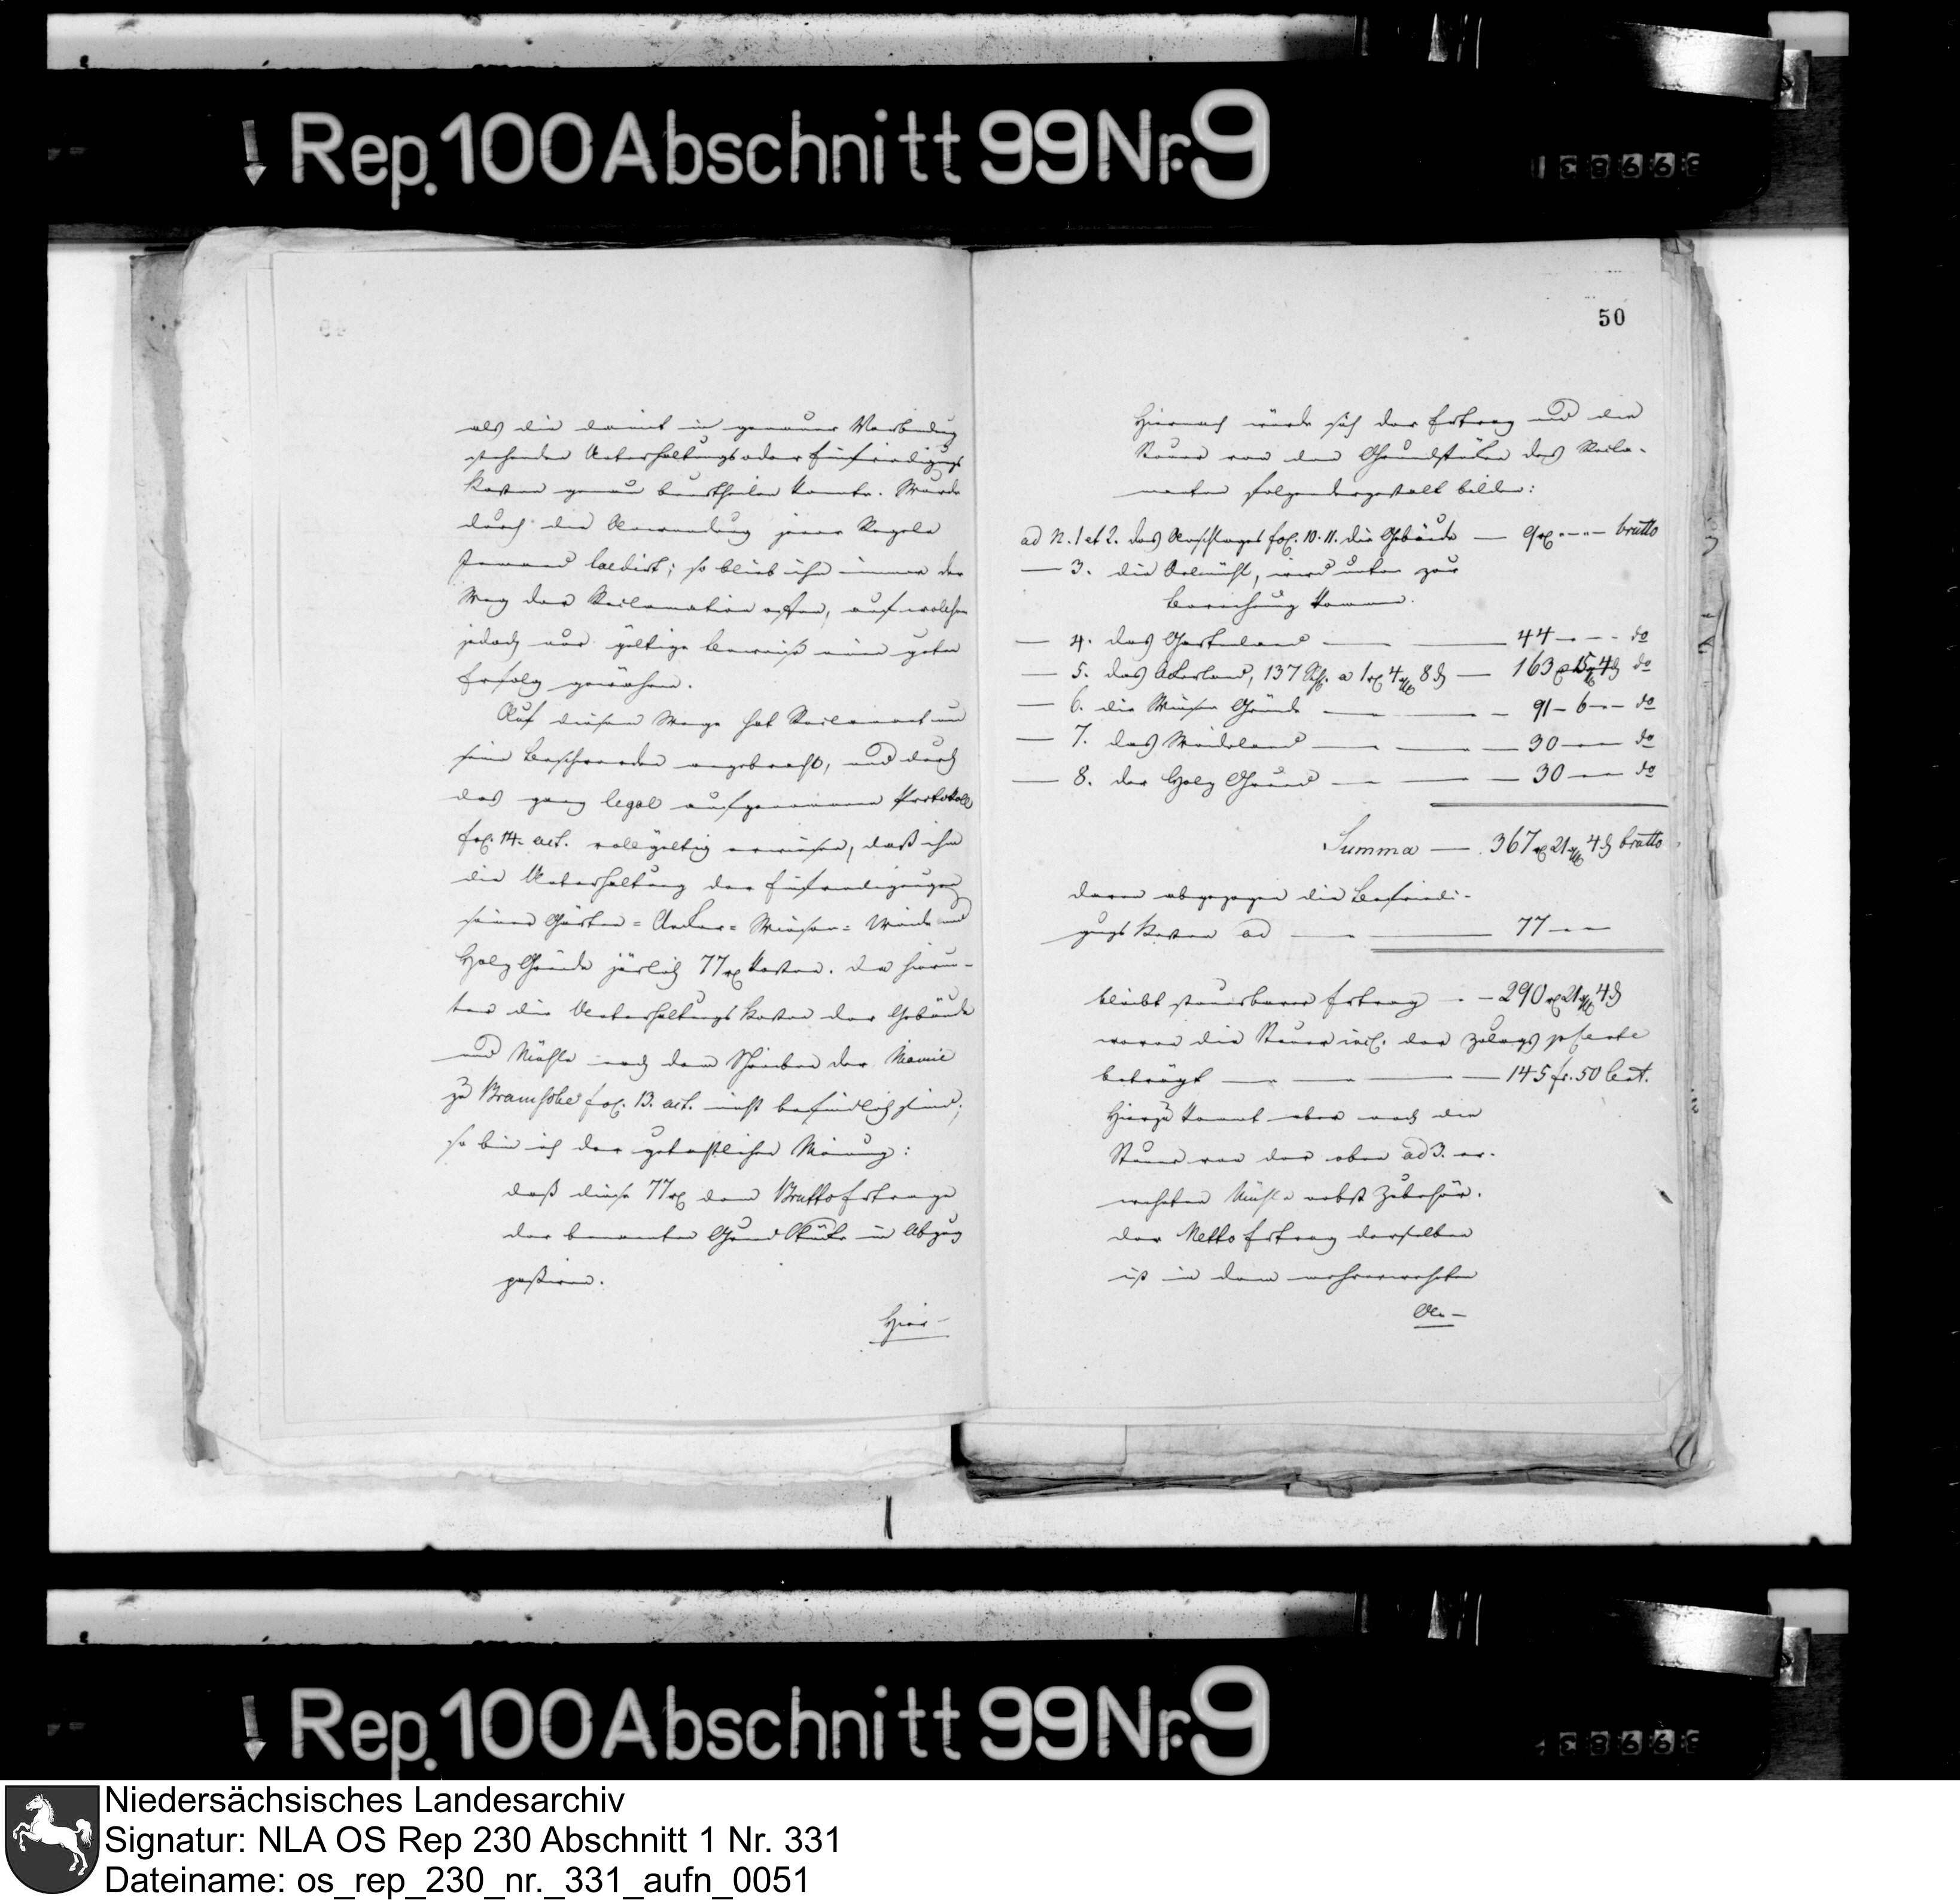 Rep. 100 Abschnitt 99 Nr. 9
als die damit in genauer Verbindung
stehenden Unterhaltungs oder Einfriedigungs
Kosten genau beurtheilen konnte. Wurde
durch die Anwendung jener Regeln
Jemand laedirt; so blieb ihm immer der
Weg der Reclamation offen, auf welchem
jedoch nur gültige Beweise einen guten
Erfolg gewähren.
Auf diesem Wege hat Reclamant nun
seine Beschwerden angebracht, und durch
das ganz legal aufgenommene Protokoll
fol. 14. act. vollgültig erwiesen, daß ihm
die Unterhaltung der Einfriedigungen
seiner Gärten- Aecker- Wiesen- Weide und
Holz Gründe järlich 77 rp kosten. Da hierun-
ter die Unterhaltungs Kosten der Gebäude
und Mühle nach dem Schreiben der Mairie
zu Bramsche fol. 13. act. nicht befindlich sind;
so bin ich der gutachtlichen Meinung:
daß diese 77 rp dem Brutto Ertrage
der benannten Grundstücke in Abzug
paßiren.
Hier-
50
Hiernach würde sich der Ertrag und die
Steuer von den Grundstücken des Recla-
manten folgendergestalt bilden:
ad N. 1 et 2. des Anschlages fol. 10. 11. die Gebäude — 9 rp - - - brutto
— 3. die Oelmühle, wird unten zur
Berechnung kommen.
— 4. das Gartenland — 44 - - - do
— 5. das Ackerland, 137 Sch. a 1 rp 4 gg 8 d — 163 rp 15 gg 4 d do
— 6. die Wiesen Gründe — 91 - 6 - - do
— 7. das Weideland — 30 - - do
— 8. der Holz Grund — 30 - - do
Summa — 367 rp 21 gg 4 d brutto
davon abgezogen die Befriedi-
gungs Kosten ad — 77 - -
bleibt steuerbarer Ertrag - - 290 rp 21 gg 4 d
wovon die Steuer incl. der Zulags pfente
beträgt — 145 fr. 50 Cent.
Hierzu kommt aber noch die
Steuer von der oben ad 3. er-
wehnten Mühle nebst Zubehör.
der Netto Ertrag derselben
ist in dem mehrerwehnten
An-
Rep. 100 Abschnitt 99 Nr. 9
Niedersächsisches Landesarchiv
Signatur: NLA OS Rep 230 Abschnitt 1 Nr. 331
Dateiname: os_rep_230_nr._331_aufn_0051